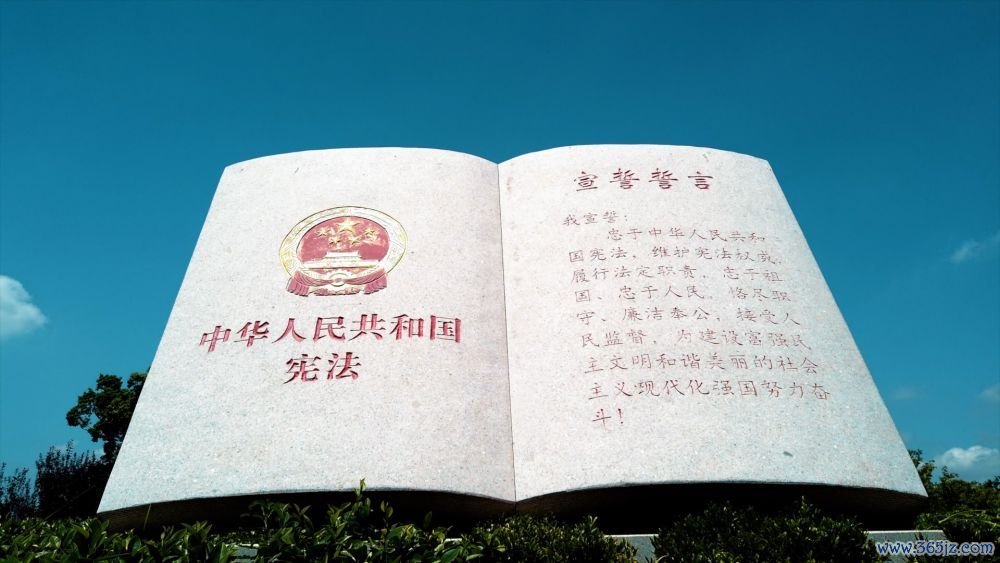 中华人民共和国
宪法
宣誓誓言
我宣誓：
忠于中华人民共和
国宪法，维护宪法权威，
履行法定职责，忠于祖
国、忠于人民，恪尽职
守、廉洁奉公，接受人
民监督，为建设富强民
主文明和谐美丽的社会
主义现代化强国努力奋
斗！
www.365jz.com